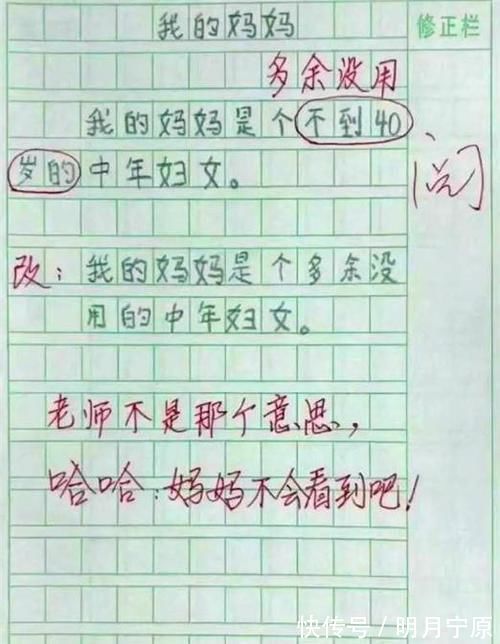 我的妈妈
修正栏
多余没用
我的妈妈是个不到40
岁的中年妇女。
阅
改：我的妈妈是个多余没
用的中年妇女。
老师不是那个意思，
哈哈：妈妈不会看到吧！
快传号／明月宁原